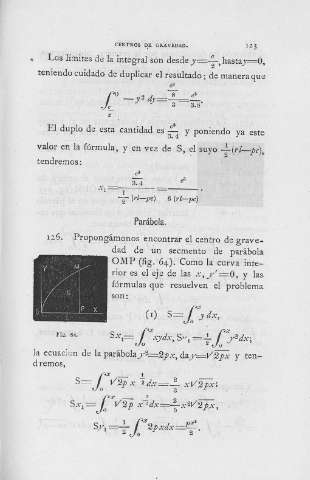 CENTROS DE GRAVEDAD. 123
Los límites de la integral son desde y=c/2, hasta y=0,
teniendo cuidado de duplicar el resultado; de manera que
∫ −y² dy = c³/8 / 3 = c³/3.8
El duplo de esta cantidad es c³/3.4 y poniendo ya este
valor en la fórmula, y en vez de S, el suyo 1/2 (rl—pc),
tendremos:
x₁ = c³/3.4 / 1/2 (rl—pc) = c³/6 (rl—pc).
Parábola.
126. Propongámonos encontrar el centro de grave-
dad de un segmento de parábola
OMP (fig. 64). Como la curva infe-
rior es el eje de las x, y'=0, y las
fórmulas que resuelven el problema
son:
Y M
S
O P X
(1) S=∫₀ˣ y dx,
Fig. 64.
Sx₁=∫₀ˣ xydx, Sy₁=1/2 ∫₀ˣ y²dx;
la ecuación de la parábola y²=2px, da y=√2px y ten-
dremos,
S=∫₀ˣ √2p x^1/2 dx=2/3 x√2px;
Sx₁=∫₀ˣ √2p x^3/2 dx=2/5 x²√2px,
Sy₁=1/2 ∫₀ˣ 2pxdx=px²/2.